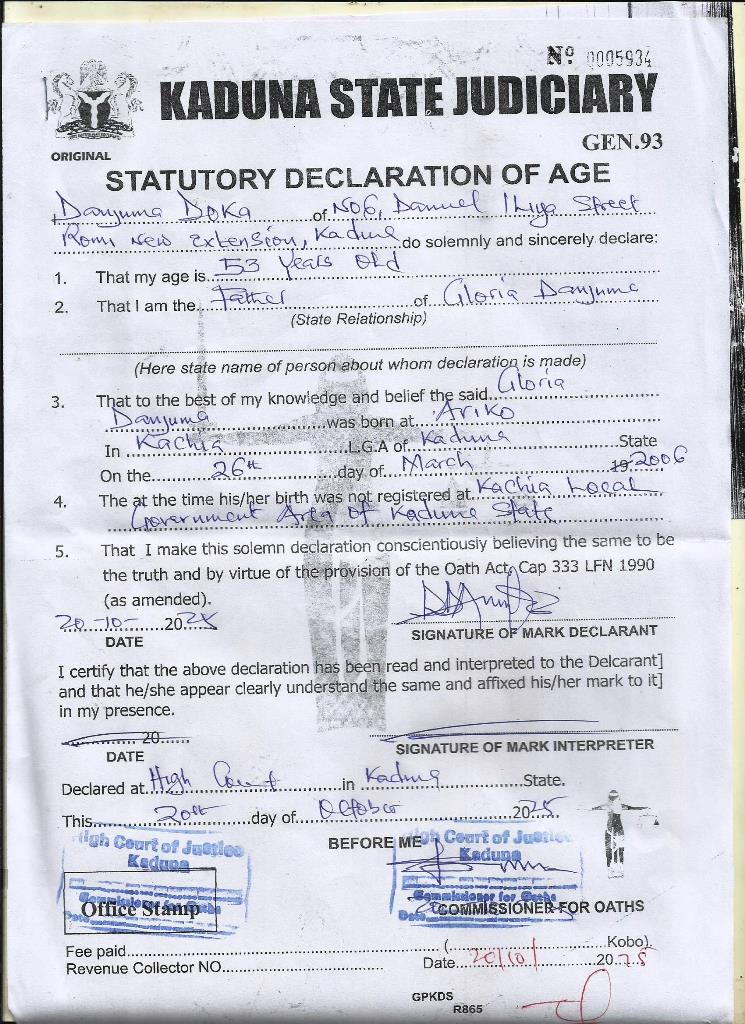 Nº 0005934
KADUNA STATE JUDICIARY
GEN.93
ORIGINAL
STATUTORY DECLARATION OF AGE
Danjuma Doka of No6, Daniel Ihiya Street
Romi New Extension, Kaduna do solemnly and sincerely declare:
1. That my age is 53 years old
2. That I am the Father of Gloria Danjuma
(State Relationship)
(Here state name of person about whom declaration is made)
3. That to the best of my knowledge and belief the said Gloria
Danjuma was born at Ariko
In Kachia L.G.A of Kaduna State
On the 26th day of March 19 2006
4. The at the time his/her birth was not registered at Kachia Local
Government Area of Kaduna State
5. That I make this solemn declaration conscientiously believing the same to be
the truth and by virtue of the provision of the Oath Act, Cap 333 LFN 1990
(as amended).
20-10- 2025
DATE
SIGNATURE OF MARK DECLARANT
I certify that the above declaration has been read and interpreted to the Delcarant]
and that he/she appear clearly understand the same and affixed his/her mark to it]
in my presence.
20
DATE
SIGNATURE OF MARK INTERPRETER
Declared at High Court in Kaduna State.
This 20th day of October 2025
High Court of Justice
Kaduna
Commissioner for Oaths
Date
Office Stamp
BEFORE ME
High Court of Justice
Kaduna
Commissioner for Oaths
Date
COMMISSIONER FOR OATHS
Fee paid ( Kobo).
Revenue Collector NO. Date 20/10/ 2025
GPKDS
R865